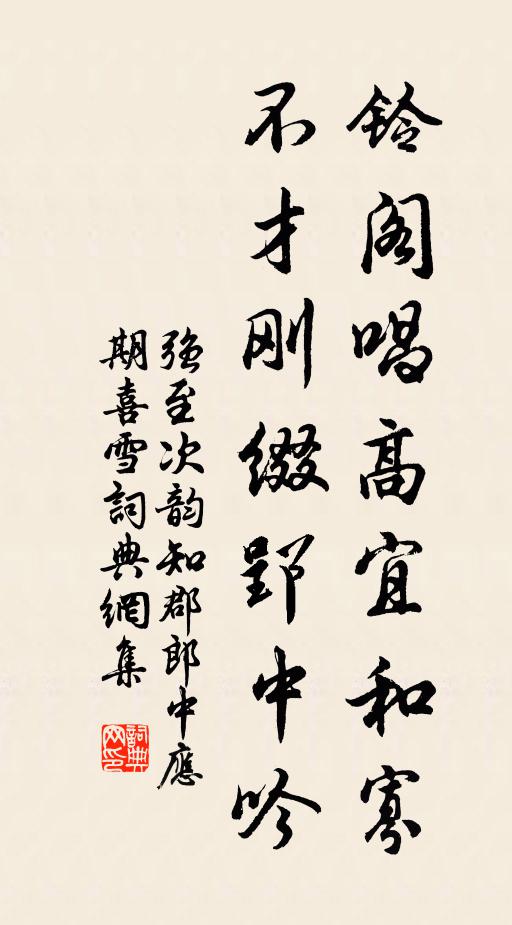 铃阁唱高宜和寡
不才刚缀郢中吟
强至次韵知郡郎中應
期喜雪詞典網集
詞典
网印